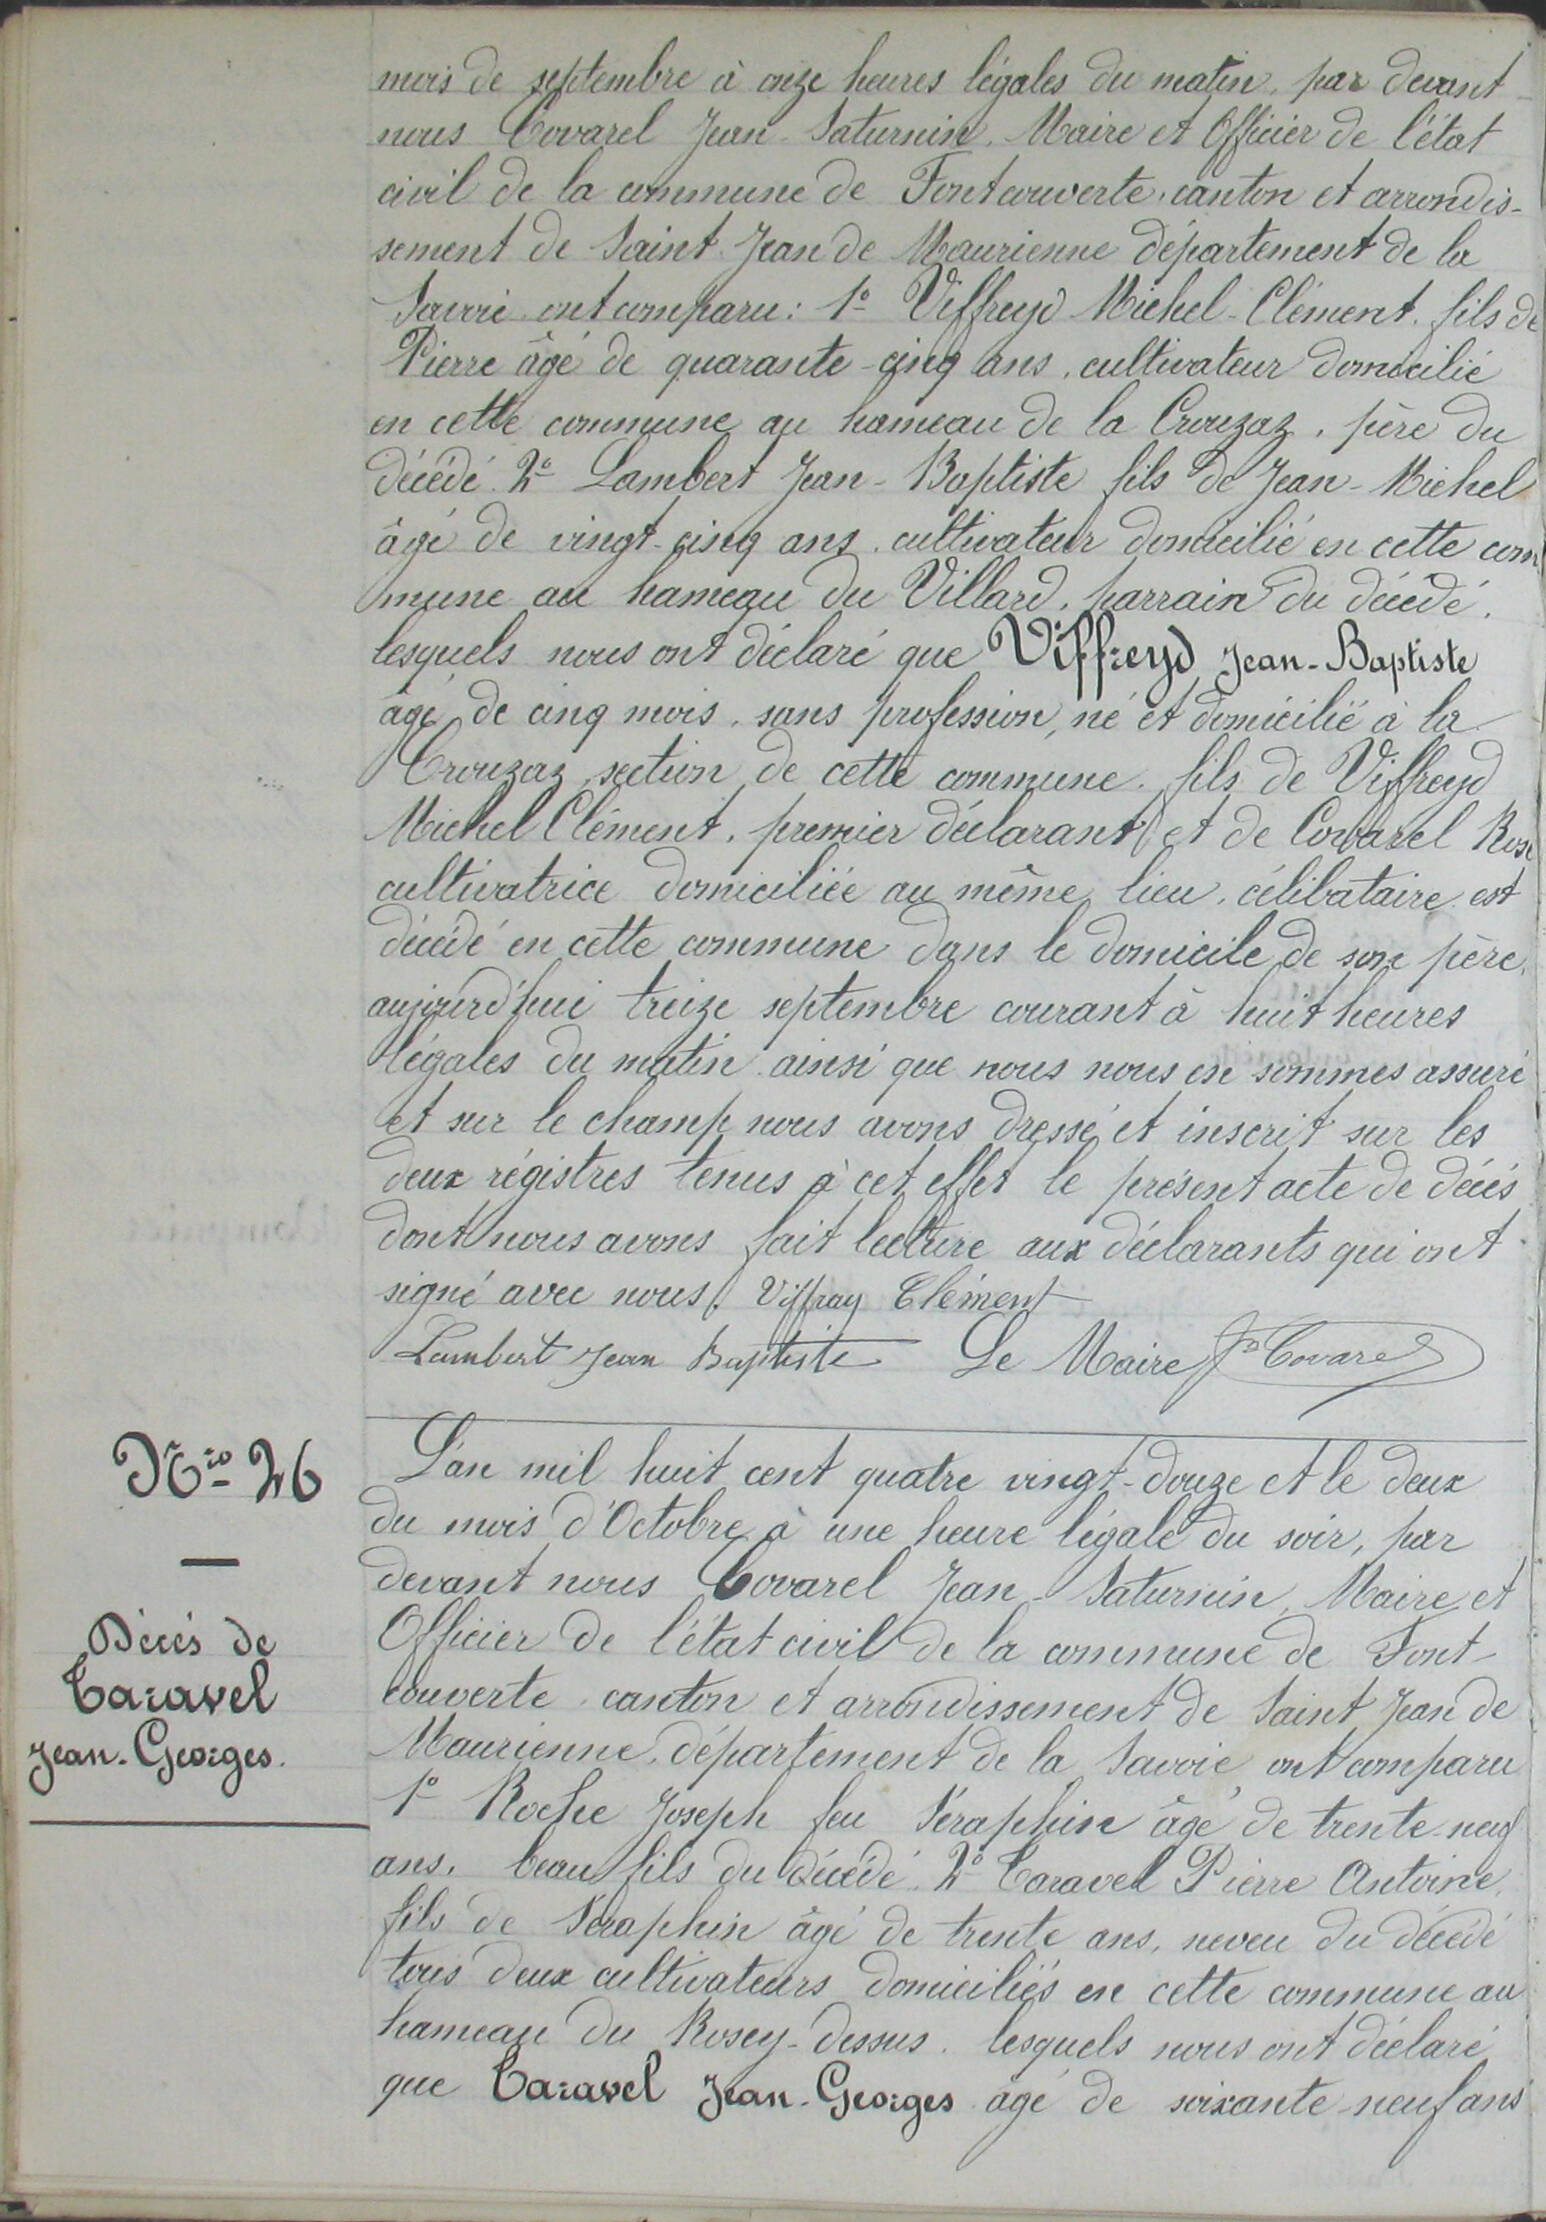 mois de septembre à onze heures légales du matin, par devant
nous Covarel Jean-Saturnin, Maire et Officier de l'état
civil de la commune de Fontcouverte, canton et arrondis-
sement de Saint Jean de Maurienne département de la
Savoie ont comparu: 1º Viffreyd Michel-Clément, fils de
Pierre âgé de quarante-cinq ans, cultivateur domicilié
en cette commune au hameau de la Crouzaz, père du
décédé. 2º Lambert Jean-Baptiste fils de Jean-Michel
âgé de vingt-cinq ans, cultivateur domicilié en cette com
mune au hameau du Villard, parrain du décédé,
lesquels nous ont déclaré que Viffreyd Jean-Baptiste
âgé de cinq mois, sans profession, né et domicilié à la
Crouzaz section de cette commune, fils de Viffreyd
Michel Clément, premier déclarant, et de Covarel Rose
cultivatrice domiciliée au même lieu, célibataire est
décédé en cette commune dans le domicile de son père,
aujourd'hui treize septembre courant à huit heures
légales du matin ainsi que nous nous en sommes assuré
et sur le champ nous avons dressé et inscrit sur les
deux régistres tenus à cet effet le présent acte de décès
dont nous avons fait lecture aux déclarants qui ont
signé avec nous. Viffray Clément
Lambert Jean Baptiste Le Maire JS Covarel
Nro 26
Décès de
Taravel
Jean-Georges.
L'an mil huit cent quatre vingt-douze et le deux
du mois d'Octobre à une heure légale du soir, par
devant nous Covarel Jean-Saturnin, Maire et
Officier de l'état civil de la commune de Font-
couverte, canton et arrondissement de Saint Jean de
Maurienne, département de la Savoie, ont comparu
1º Roche Joseph feu Séraphin âgé de trente-neuf
ans, beau fils du décédé. 2º Taravel Pierre Antoine,
fils de Séraphin âgé de trente ans, neveu du décédé
tous deux cultivateurs domiciliés en cette commune au
hameau du Rosey-dessus, lesquels nous ont déclaré
que Taravel Jean-Georges âgé de soixante-neuf ans